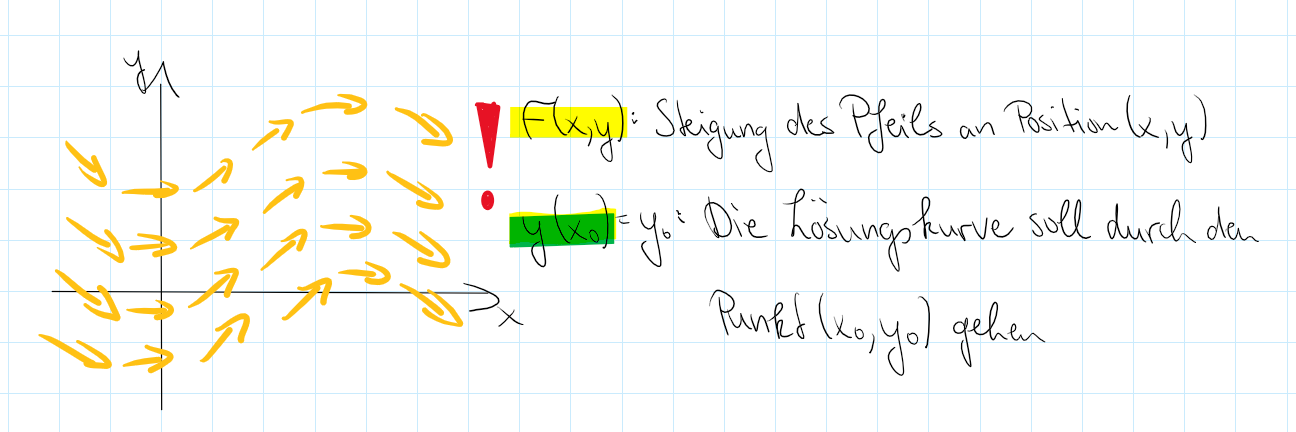 y
F(x,y): Steigung des Pfeils an Position (x,y)
y(x₀) = y₀: Die Lösungskurve soll durch den
x
Punkt (x₀,y₀) gehen